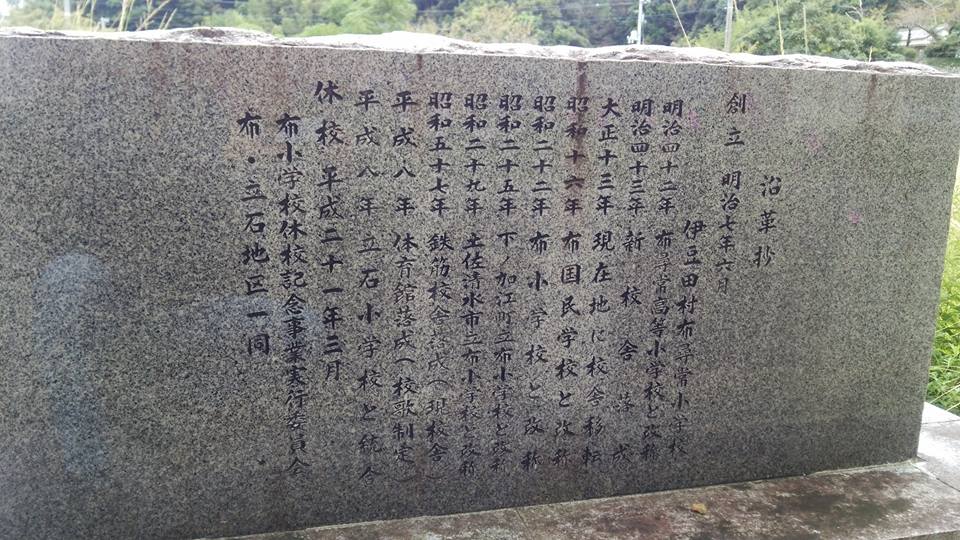 沿革抄
創立 明治七年六月
伊豆田村布尋常小学校
明治四十二年 布尋常高等小学校と改称
明治四十三年 新校舎落成
大正十三年 現在地に校舎移転
昭和十六年 布国民学校と改称
昭和二十二年 布小学校と改称
昭和二十五年 下ノ加江町立布小学校と改称
昭和二十九年 土佐清水市立布小学校と改称
昭和五十七年 鉄筋校舎落成(現校舎)
平成八年 体育館落成(校歌制定)
平成八年 立石小学校と統合
休校 平成二十一年三月
布小学校休校記念事業実行委員会
布・立石地区一同